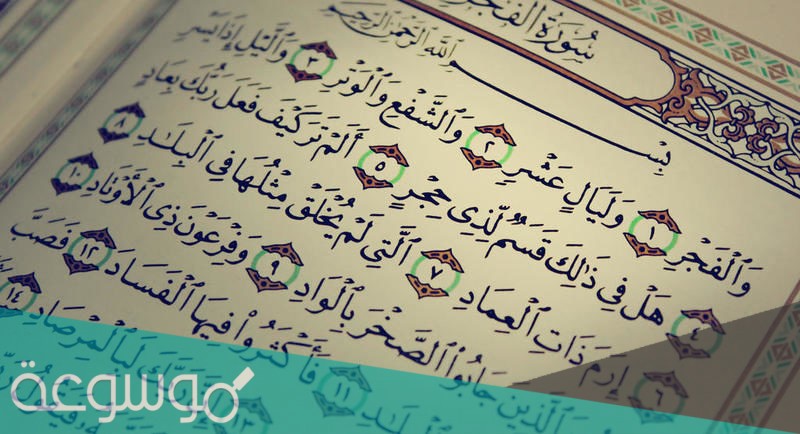 سُورَةُ الْفَجْرِ
بِسْمِ ٱللَّهِ ٱلرَّحْمَٰنِ ٱلرَّحِيمِ
وَٱلْفَجْرِ ١ وَلَيَالٍ عَشْرٍ ٢ وَٱلشَّفْعِ وَٱلْوَتْرِ ٣ وَٱلَّيْلِ إِذَا يَسْرِ
٤ هَلْ فِى ذَٰلِكَ قَسَمٌ لِّذِى حِجْرٍ ٥ أَلَمْ تَرَ كَيْفَ فَعَلَ رَبُّكَ بِعَادٍ
٦ إِرَمَ ذَاتِ ٱلْعِمَادِ ٧ ٱلَّتِى لَمْ يُخْلَقْ مِثْلُهَا فِى ٱلْبِلَٰدِ ٨
ٱلَّذِينَ جَابُوا۟ ٱلصَّخْرَ بِٱلْوَادِ ٩ وَفِرْعَوْنَ ذِى ٱلْأَوْتَادِ ١٠
ٱلْبِلَٰدِ ١١ فَأَكْثَرُوا۟ فِيهَا ٱلْفَسَادَ ١٢ فَصَبَّ
١٣ لَبِٱلْمِرْصَادِ ١٤
موسوعة